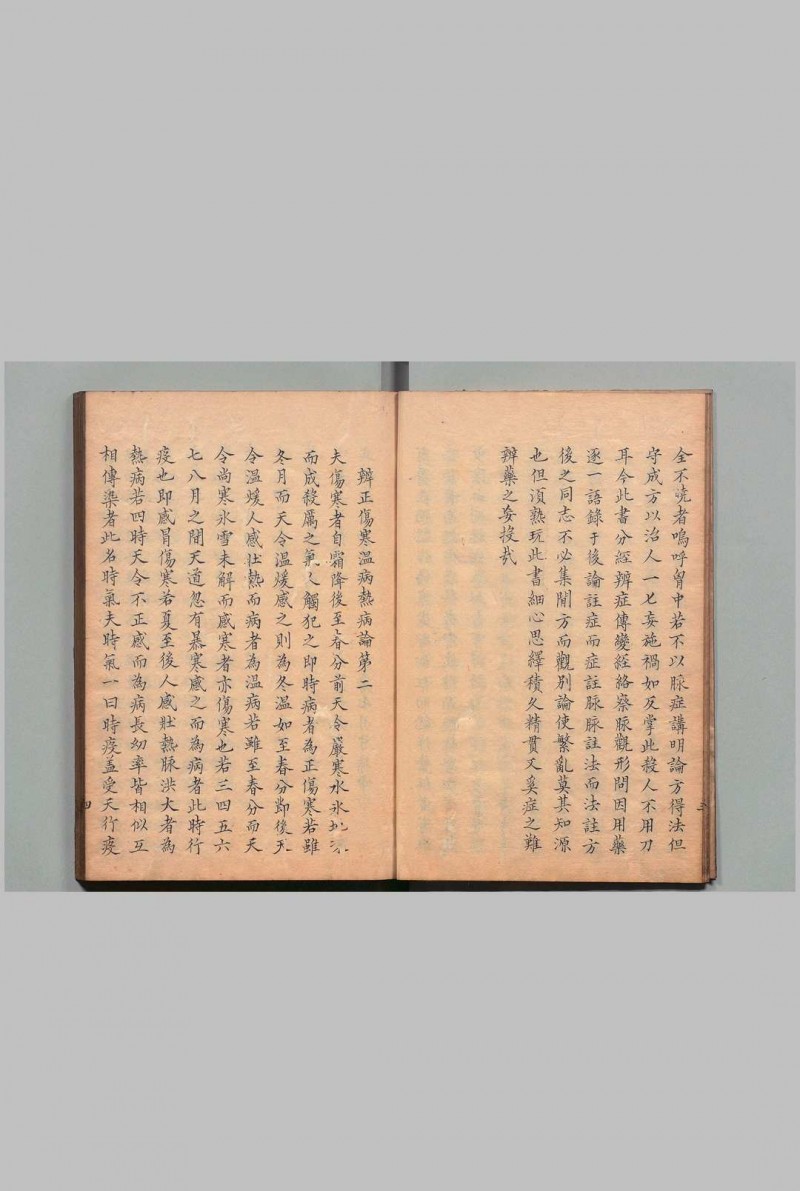 全不暁者嗚呼胷中若不以脉症講明論方得法但
守成方以治人一七妄施禍如反掌此殺人不用刀
耳今此書分經辨症傳變経絡察脉觀形問因用藥
逐一語錄于後論註症而症註脉脉註法而法註方
後之同志不必集閒方而觀別論使繁亂莫其知源
也但湏熟玩此書細心思繹積久精貫又奚症之難
辨藥之妄投㢤
辨正傷寒温病熱病論第二
夫傷寒者自霜降後至春分前天令嚴寒水氷地
而成殺厲之氣人觸犯之即時病者為正傷寒若雖
冬月而天令温煖感之則為冬温如至春分即後天
令温煖人感壮熱而病者為温病若雖至春分而天
令尚寒氷雪未解而感寒者亦傷寒也若三四五六
七八月之間天道忽有暴寒感之而為病者此時行
疫也即感冒傷寒若夏至後人感壯熱脉洪大者為
熱病若四時天令不正感而為病長㓜率皆相似互
相傳染者此名時氣夫時氣一曰時疫盖受天行疫
三
四